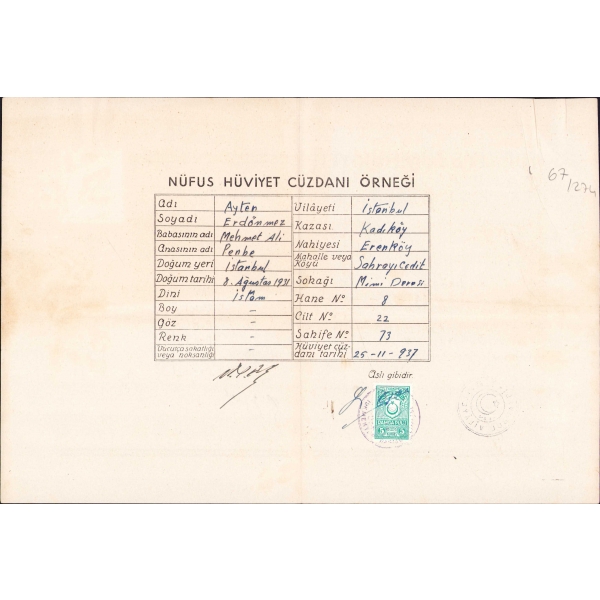 NÜFUS HÜVİYET CÜZDANI ÖRNEĞİ
67/274
Adı Ayten
Soyadı Erdönmez
Babasının adı Mehmet Ali
Anasının adı Penbe
Doğum yeri İstanbul
Doğum tarihi 8. Ağustos 1931
Dini İslâm
Boy -
Göz -
Renk -
Vücutça sakatlığı veya noksanlığı -
Vilâyeti İstanbul
Kazası Kadıköy
Nahiyesi Erenköy
Mahalle veya Köyü Sahrayıcedit
Sokağı Mimi Deresi
Hane No 8
Cilt No 22
Sahife No 73
Hüviyet cüzdanı tarihi 25-11-937
Aslı gibidir.
5 5